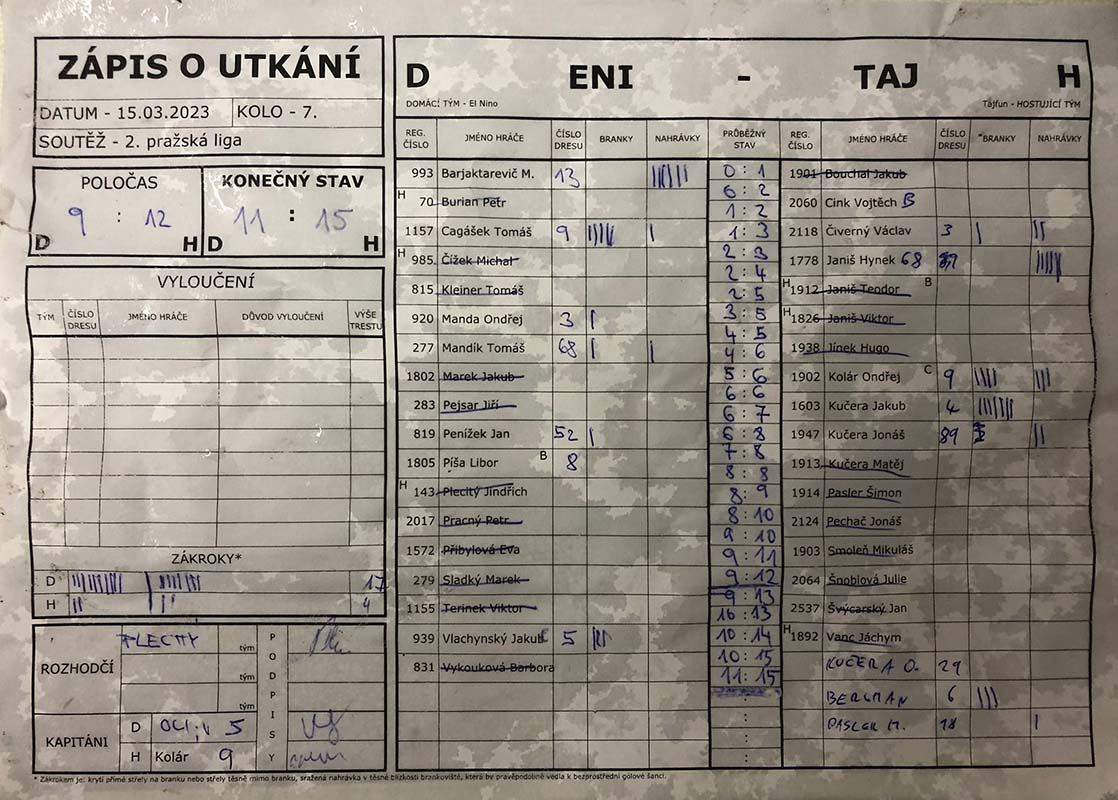 ZÁPIS O UTKÁNÍ
DATUM - 15.03.2023 KOLO - 7.
SOUTĚŽ - 2. pražská liga
POLOČAS
9 : 12
D H
KONEČNÝ STAV
11 : 15
D H
VYLOUČENÍ
TÝM ČÍSLO DRESU JMÉNO HRÁČE DŮVOD VYLOUČENÍ VÝŠE TRESTU
ZÁKROKY*
D 17
H 4
ROZHODČÍ
PLECITÝ tým
tým
tým
PODPISY
KAPITÁNI
D 5
H Kolár 9
D ENI - TAJ H
DOMÁCÍ TÝM - El Nino Tajfun - HOSTUJÍCÍ TÝM
REG. ČÍSLO JMÉNO HRÁČE ČÍSLO DRESU BRANKY NAHRÁVKY
993 Barjaktarevič M. 13
H 70 Burian Petr
1157 Cagášek Tomáš 9
H 985 Čížek Michal
815 Kleiner Tomáš
920 Manda Ondřej 3
277 Mandík Tomáš 68
1802 Marek Jakub
283 Pejsar Jiří
819 Penížek Jan 52
1805 Píša Libor B 8
H 143 Plecitý Jindřich
2017 Pracný Petr
1572 Přibylová Eva
279 Sladký Marek
1155 Terinek Viktor
939 Vlachynský Jakub C 5
831 Vykouková Barbora
PRŮBĚŽNÝ STAV
0 : 1
0 : 2
1 : 2
1 : 3
2 : 3
2 : 4
2 : 5
3 : 5
4 : 5
4 : 6
5 : 6
6 : 6
6 : 7
6 : 8
7 : 8
8 : 8
8 : 9
8 : 10
9 : 10
9 : 11
9 : 12
9 : 13
10 : 13
10 : 14
10 : 15
11 : 15
REG. ČÍSLO JMÉNO HRÁČE ČÍSLO DRESU BRANKY NAHRÁVKY
1901 Bouchal Jakub
2060 Cink Vojtěch B
2118 Čiverný Václav 3
1778 Janiš Hynek 68
H 1912 Janiš Teodor B
H 1826 Janiš Viktor
1938 Jínek Hugo
1902 Kolár Ondřej C 9
1603 Kučera Jakub 4
1947 Kučera Jonáš 89
1913 Kučera Matěj
1914 Pasler Šimon
2124 Pechač Jonáš
1903 Smoleň Mikuláš
2064 Šnoblová Julie
2537 Švýcarský Jan
H 1892 Vanc Jáchym
KUČERA O. 29
BERGMAN 6
PASLER M. 18
* Zákrokem je: krytí přímé střely na branku nebo střely těsně mimo branku, sražená nahrávka v těsné blízkosti brankoviště, která by pravěpodobně vedla k bezprostřední gólové šanci.